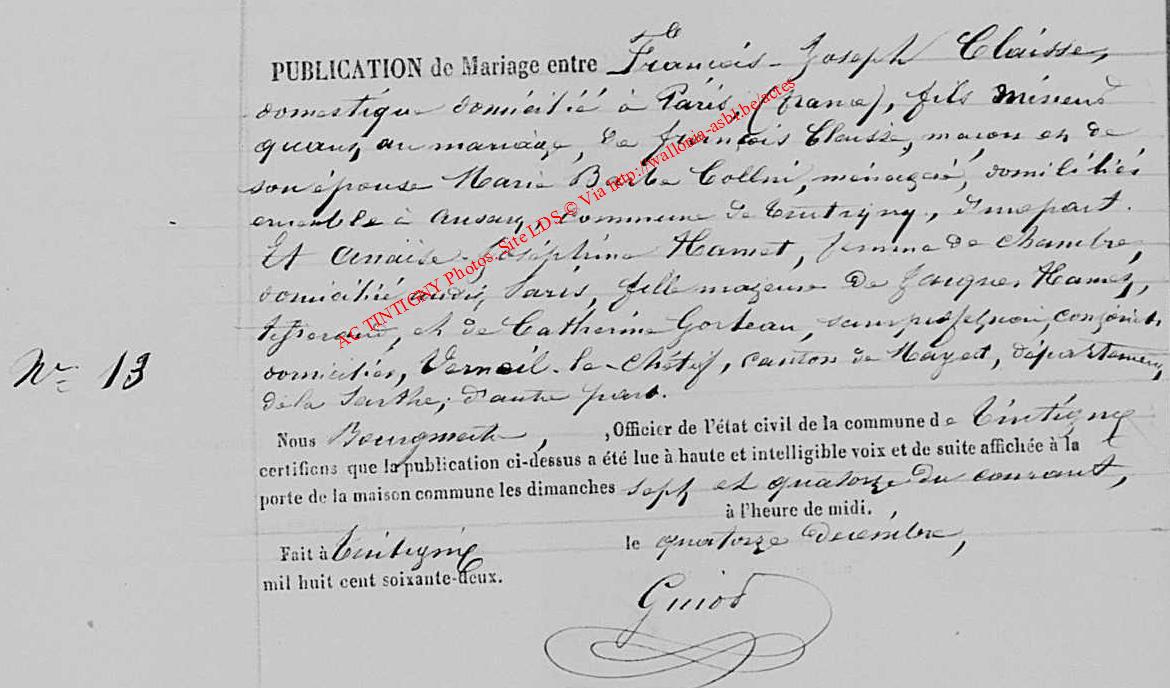 PUBLICATION de Mariage entre François-Joseph Claisse,
domestique domicilié à Paris, (france), fils mineur
quant au mariage, de françois Claisse, maçon et de
son épouse Marie Barbe Collin, ménagère, domiciliés
ensemble à ansart, commune de tintigny, d'une part.
Et Anaise-Joséphine Hamet, femme de chambre,
domiciliée audit Paris, fille majeure de Jacques Hamet,
et de Catherine Gorteau, sans profession, conjoints
domiciliés, Verneil-le-Chétif, canton de Mayet, département
de la Sarthe, d'autre part.
N° 13
Nous Bourgmestre, , Officier de l'état civil de la commune de tintigny
certifions que la publication ci-dessus a été lue à haute et intelligible voix et de suite affichée à la
porte de la maison commune les dimanches sept et quatorze du courant,
à l'heure de midi.
Fait à tintigny le quatorze décembre,
mil huit cent soixante-deux.
Guiot
AC TINTIGNY Photos. Site LDS © Via http://wallonia-asbl.be/actes